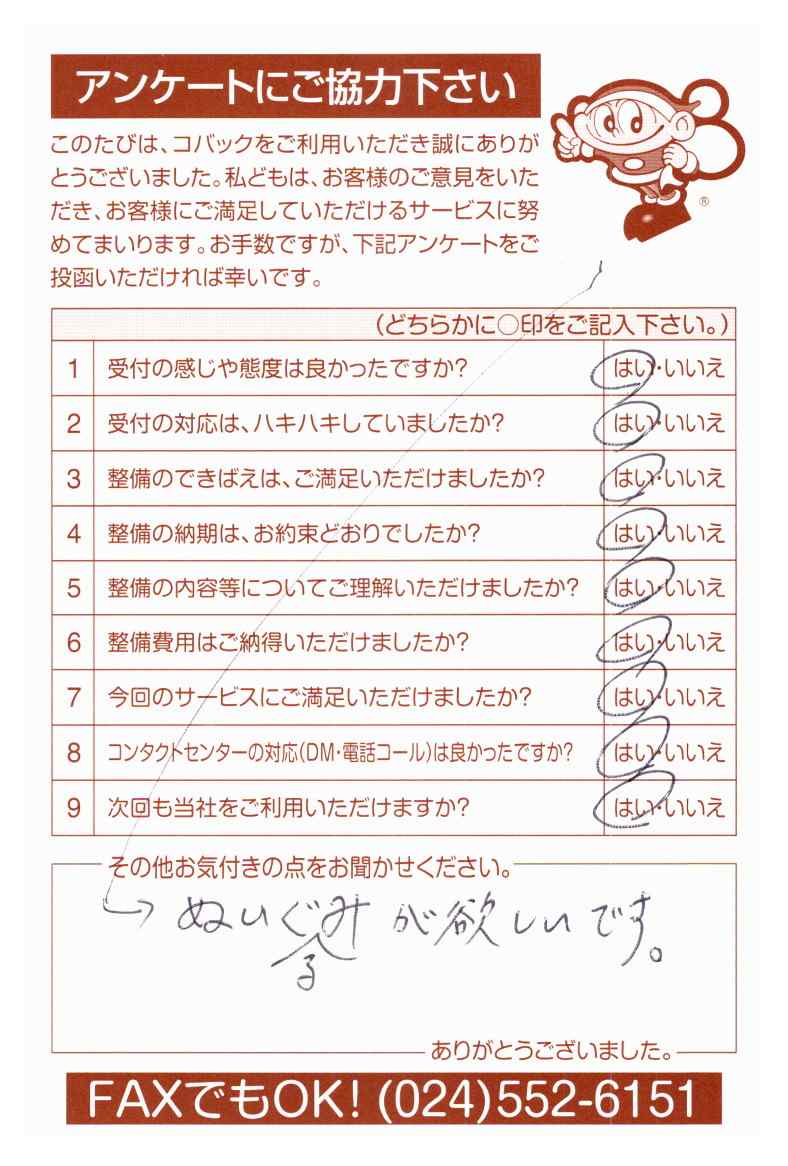 アンケートにご協力下さい
このたびは、コバックをご利用いただき誠にありが
とうございました。私どもは、お客様のご意見をいた
だき、お客様にご満足していただけるサービスに努
めてまいります。お手数ですが、下記アンケートをご
投函いただければ幸いです。
®
(どちらかに○印をご記入下さい。)
1 受付の感じや態度は良かったですか? はい・いいえ
2 受付の対応は、ハキハキしていましたか? はい・いいえ
3 整備のできばえは、ご満足いただけましたか? はい・いいえ
4 整備の納期は、お約束どおりでしたか? はい・いいえ
5 整備の内容等についてご理解いただけましたか? はい・いいえ
6 整備費用はご納得いただけましたか? はい・いいえ
7 今回のサービスにご満足いただけましたか? はい・いいえ
8 コンタクトセンターの対応(DM・電話コール)は良かったですか? はい・いいえ
9 次回も当社をご利用いただけますか? はい・いいえ
その他お気付きの点をお聞かせください。
→ ぬいぐみが欲しいです。
る
ありがとうございました。
FAXでもOK! (024)552-6151